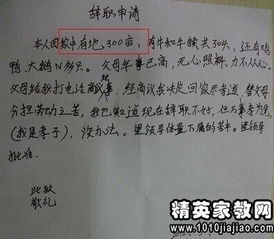 辞职申请
本人因家中有地300亩，有牛和牛犊共30头，还有鸡
鸭、大鹅N多只。父母年事已高，无心照料，力不从心。
父母给我打电话商议事，经商议我决定回家尽孝道，替父母
分担劳动之苦，我也知道现在辞职不好，但万事孝为先
（我是孝子），没办法。望领导体量下属的苦中。望领导
批准。
此致
敬礼
精英家教网
www.1010jiajiao.com